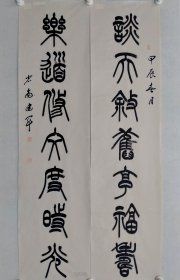 談天敘舊享福壽
甲辰春月
樂道修文度時光